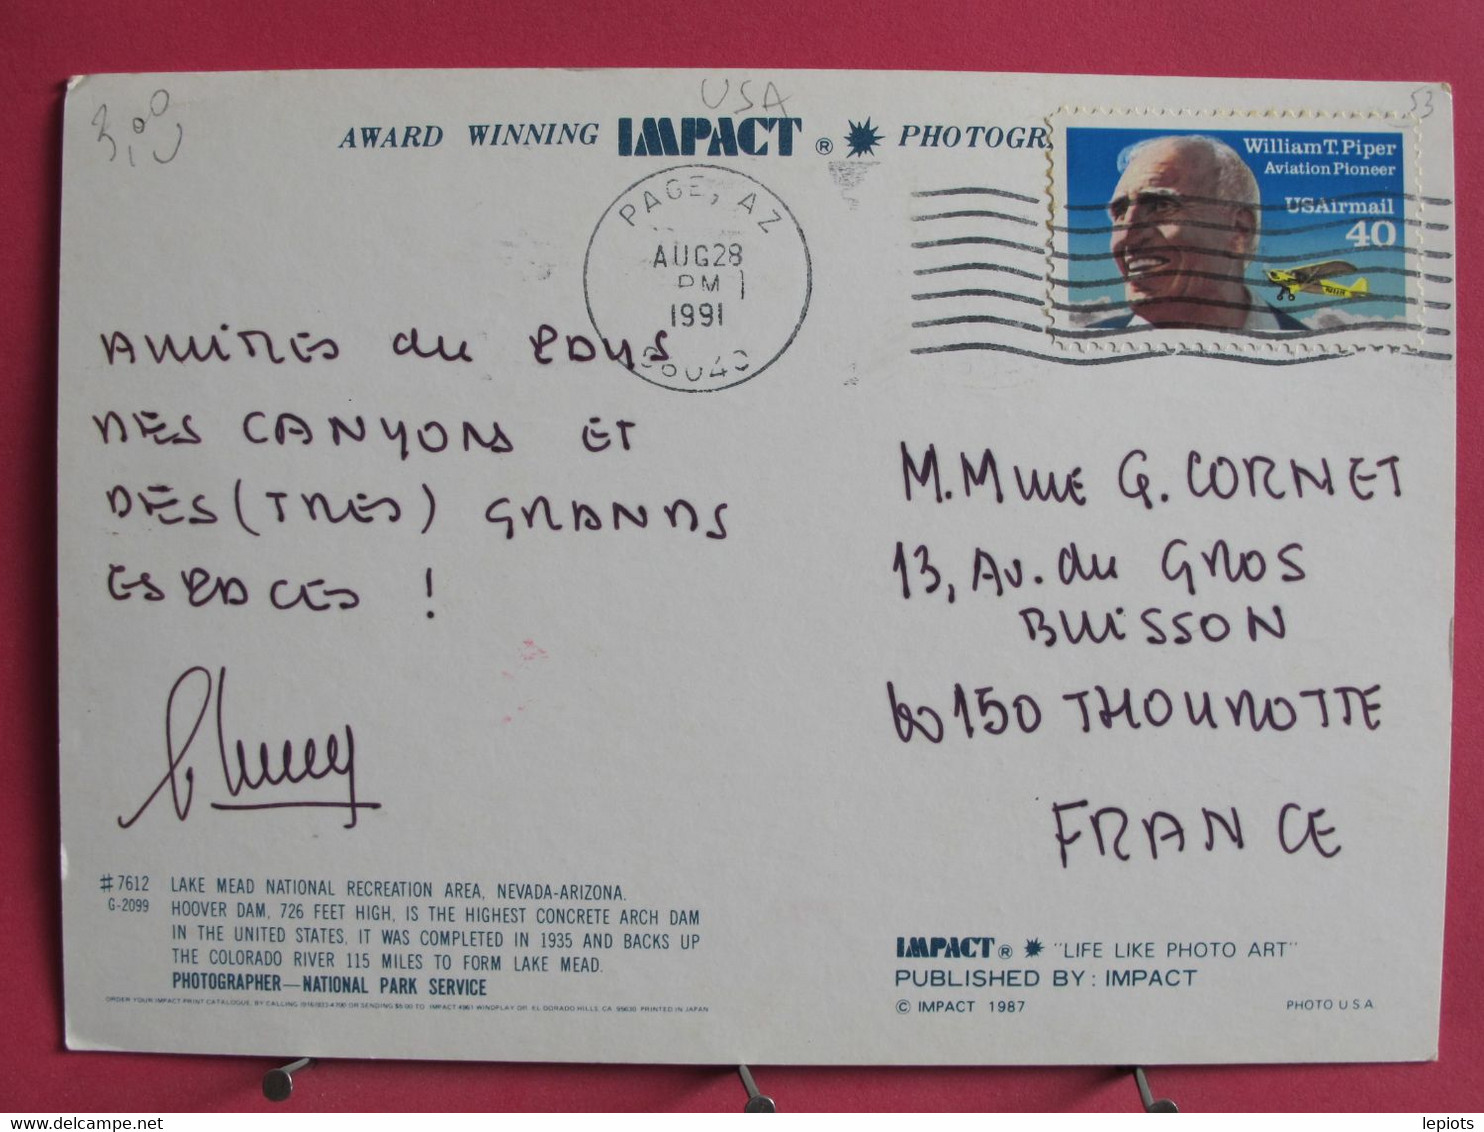 3,00
USA
53
AWARD WINNING IMPACT ® PHOTOGR
William T. Piper
Aviation Pioneer
USAirmail
40
PAGE, AZ
AUG 28
PM
1991
AMITIES du PAYS
DES CANYONS ET
DES (TRES) GRANDS
ESPACES !
M. Mme G. CORNET
13, Av. du GROS
BUISSON
60150 THOUROTTE
FRANCE
#7612 LAKE MEAD NATIONAL RECREATION AREA, NEVADA-ARIZONA.
G-2099 HOOVER DAM, 726 FEET HIGH, IS THE HIGHEST CONCRETE ARCH DAM
IN THE UNITED STATES. IT WAS COMPLETED IN 1935 AND BACKS UP
THE COLORADO RIVER 115 MILES TO FORM LAKE MEAD.
PHOTOGRAPHER—NATIONAL PARK SERVICE
ORDER YOUR IMPACT PRINT CATALOGUE BY CALLING (916)933-4700 OR SENDING $5.00 TO IMPACT 4961 WINDPLAY DR. EL DORADO HILLS, CA 95630 PRINTED IN JAPAN
IMPACT ® "LIFE LIKE PHOTO ART"
PUBLISHED BY: IMPACT
© IMPACT 1987
PHOTO U.S.A.
lepiots